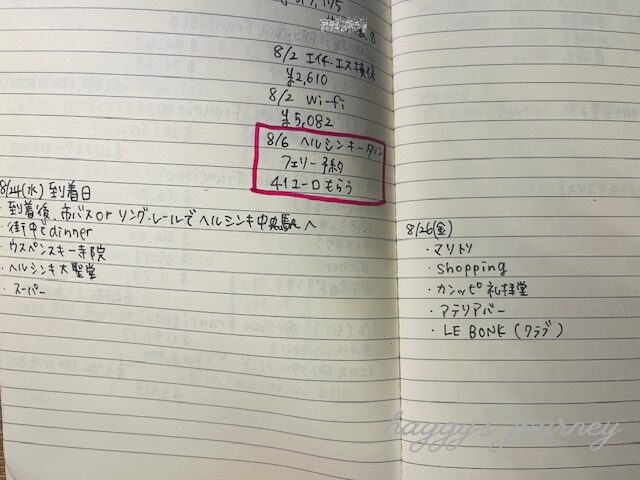 8/2 エイチ・エス損保
¥2,610
8/2 Wi-fi
¥5,082
8/6 ヘルシンキータリン
フェリー予約
41ユーロもらう
8/24(水) 到着日
・到着後、市バス or リング・レールでヘルシンキ中央駅へ
・街中でdinner
・ウスペンスキー寺院
・ヘルシンキ大聖堂
・スーパー
8/26(金)
・マリトリ
・shopping
・カンッピ礼拝堂
・アテリアバー
・LE BONK (クラブ)
haggy's journey